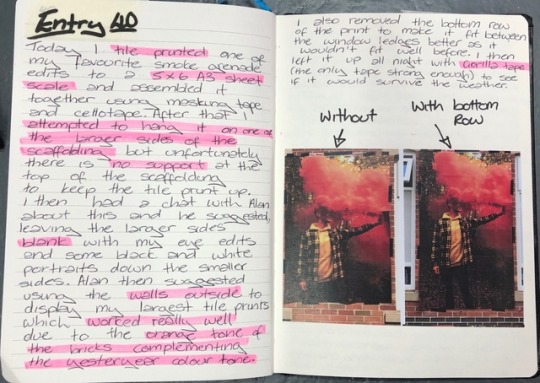 Entry 40
Today I tile printed one of
my favourite smoke grenade
edits to a 5x6 A3 sheet
scale and assembled it
together using masking tape
and cellotape. After that I
attempted to hang it on one of
the larger sides of the
scaffolding but unfortunately
there is no support at the
top of the scaffolding
to keep the tile print up.
I then had a chat with Alan
about this and he suggested,
leaving the larger sides
blank with my eye edits
and some black and white
portraits down the smaller
sides. Alan then suggested
using the walls outside to
display my largest tile prints
which worked really well
due to the orange tone of
the bricks complementing
the yesteryear colour tone.
I also removed the bottom row
of the print to make it fit between
the window ledges better as it
wouldn't fit well before. I then
left it up all night with Gorilla tape
(the only tape strong enough) to see
if it would survive the weather.
Without
With bottom
Row